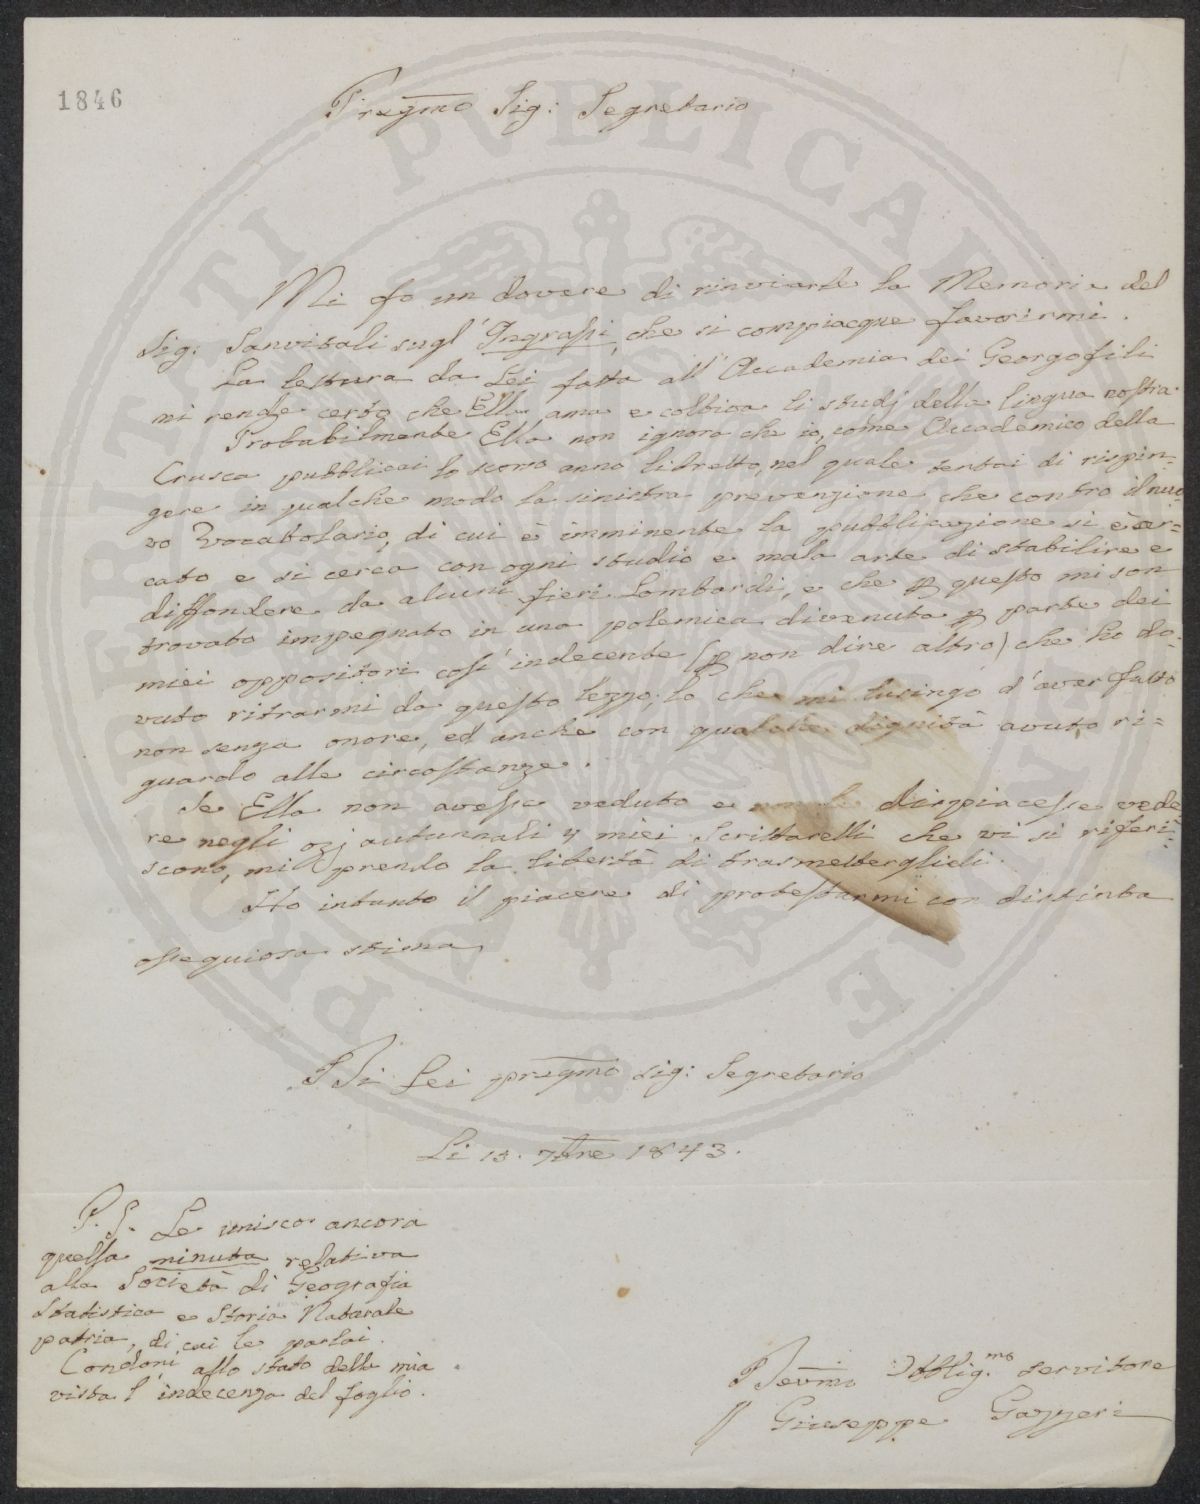 1846
Pregmo Sig: Segretario
Mi fo un dovere di rinviarle la Memoria del
Sig: Sanvitali sugl'Ingrassi, che si compiacque favorirmi.
La lettura da Lei fatta all'Accademia dei Georgofili
mi rende certo che Ella ama e coltiva li studj della lingua nostra
Probabilmente Ella non ignora che io, come Accademico della
Crusca pubblicai lo scorso anno libretto, nel quale tentai di rispin=
gere in qualche modo la sinistra prevenzione che contro il nuo=
vo Vocabolario, di cui è imminente la pubblicazione si è cer=
cato e si cerca con ogni studio e mala arte di stabilire e
diffondere da alcuni fieri Lombardi, e che p questo mi son
trovato impegnato in una polemica divenuta p parte dei
miei oppositori così indecente (p non dire altro) che ho do=
vuto ritrarmi da questo lezzo; lo che mi lusingo d'aver fatto
non senza onore, ed anche con qualche dignità avuto ri=
guardo alle circostanze.
Se Ella non avesse veduto e non le dispiacesse vede
re negli ozj autunnali i miei Scrittarelli che vi si riferi=
scono, mi prendo la libertà di trasmetterglieli.
Ho intanto il piacere di protestarmi con distinta
ossequiosa stima
Di Lei pregmo sig: Segretario
Li 13. 7bre 1843.
P.S. Le unisco ancora
quella minuta relativa
alla Società di Geografia
Statistica e Storia Naturale
patria, di cui le parlai.
Condoni allo stato della mia
vista l'indecenza del foglio.
Devmo Obblig.mo servitore
Giuseppe Gazzeri
PVBLICAE